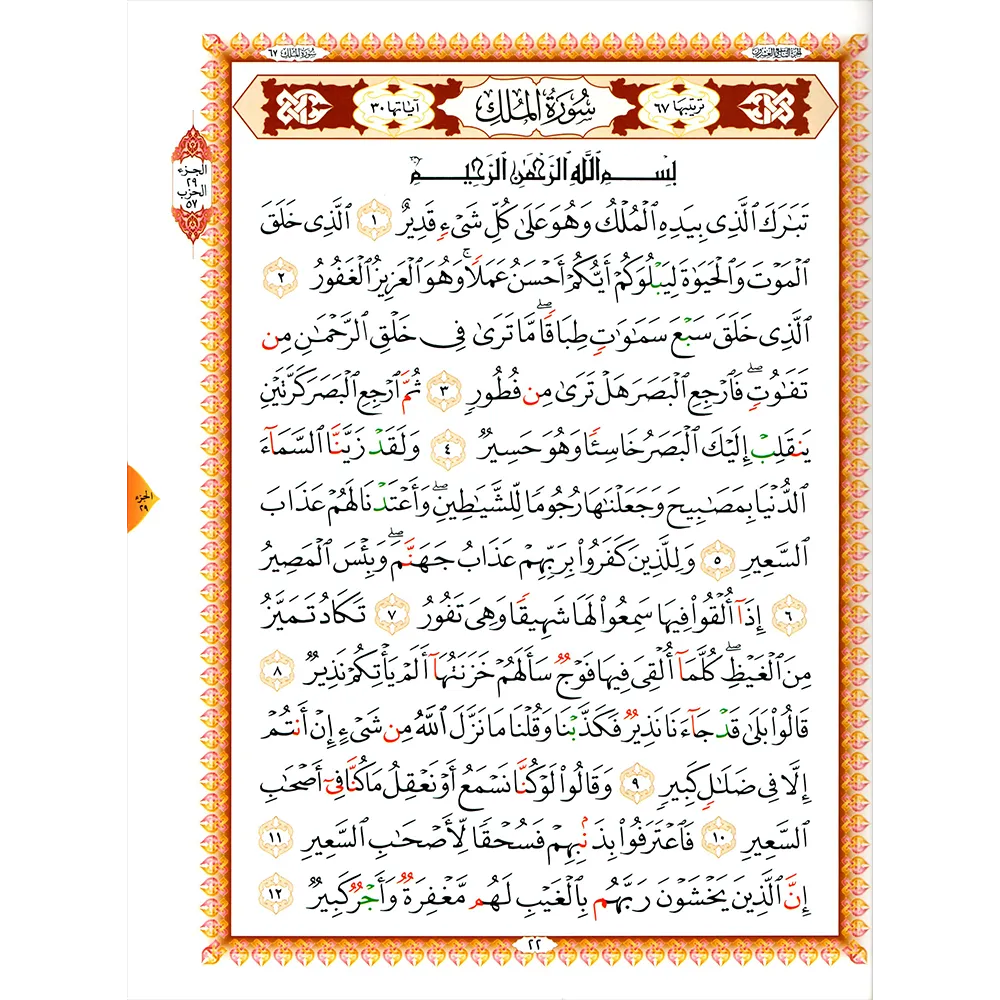 الجزء التاسع والعشرون
سورة الملك ٦٧
ترتيبها ٦٧
سُورَةُ الْمُلْكِ
آياتها ٣٠
بِسْمِ اللَّهِ الرَّحْمَٰنِ الرَّحِيمِ
تَبَٰرَكَ ٱلَّذِى بِيَدِهِ ٱلْمُلْكُ وَهُوَ عَلَىٰ كُلِّ شَىْءٍ قَدِيرٌ ١ ٱلَّذِى خَلَقَ
ٱلْمَوْتَ وَٱلْحَيَوٰةَ لِيَبْلُوَكُمْ أَيُّكُمْ أَحْسَنُ عَمَلًا ۚ وَهُوَ ٱلْعَزِيزُ ٱلْغَفُورُ ٢
ٱلَّذِى خَلَقَ سَبْعَ سَمَٰوَٰتٍ طِبَاقًا ۖ مَّا تَرَىٰ فِى خَلْقِ ٱلرَّحْمَٰنِ مِن
تَفَٰوُتٍ ۖ فَٱرْجِعِ ٱلْبَصَرَ هَلْ تَرَىٰ مِن فُطُورٍ ٣ ثُمَّ ٱرْجِعِ ٱلْبَصَرَ كَرَّتَيْنِ
يَنقَلِبْ إِلَيْكَ ٱلْبَصَرُ خَاسِئًا وَهُوَ حَسِيرٌ ٤ وَلَقَدْ زَيَّنَّا ٱلسَّمَآءَ
ٱلدُّنْيَا بِمَصَٰبِيحَ وَجَعَلْنَٰهَا رُجُومًا لِّلشَّيَٰطِينِ ۖ وَأَعْتَدْنَا لَهُمْ عَذَابَ
ٱلسَّعِيرِ ٥ وَلِلَّذِينَ كَفَرُوا۟ بِرَبِّهِمْ عَذَابُ جَهَنَّمَ ۖ وَبِئْسَ ٱلْمَصِيرُ
٦ إِذَآ أُلْقُوا۟ فِيهَا سَمِعُوا۟ لَهَا شَهِيقًا وَهِىَ تَفُورُ ٧ تَكَادُ تَمَيَّزُ
مِنَ ٱلْغَيْظِ ۖ كُلَّمَآ أُلْقِىَ فِيهَا فَوْجٌ سَأَلَهُمْ خَزَنَتُهَآ أَلَمْ يَأْتِكُمْ نَذِيرٌ ٨
قَالُوا۟ بَلَىٰ قَدْ جَآءَنَا نَذِيرٌ فَكَذَّبْنَا وَقُلْنَا مَا نَزَّلَ ٱللَّهُ مِن شَىْءٍ إِنْ أَنتُمْ
إِلَّا فِى ضَلَٰلٍ كَبِيرٍ ٩ وَقَالُوا۟ لَوْ كُنَّا نَسْمَعُ أَوْ نَعْقِلُ مَا كُنَّا فِىٓ أَصْحَٰبِ
ٱلسَّعِيرِ ١٠ فَٱعْتَرَفُوا۟ بِذَنۢبِهِمْ فَسُحْقًا لِّأَصْحَٰبِ ٱلسَّعِيرِ ١١
إِنَّ ٱلَّذِينَ يَخْشَوْنَ رَبَّهُم بِٱلْغَيْبِ لَهُم مَّغْفِرَةٌ وَأَجْرٌ كَبِيرٌ ١٢
٢٢
الجزء
٢٩
الحزب
٥٧
الجزء
٢٩